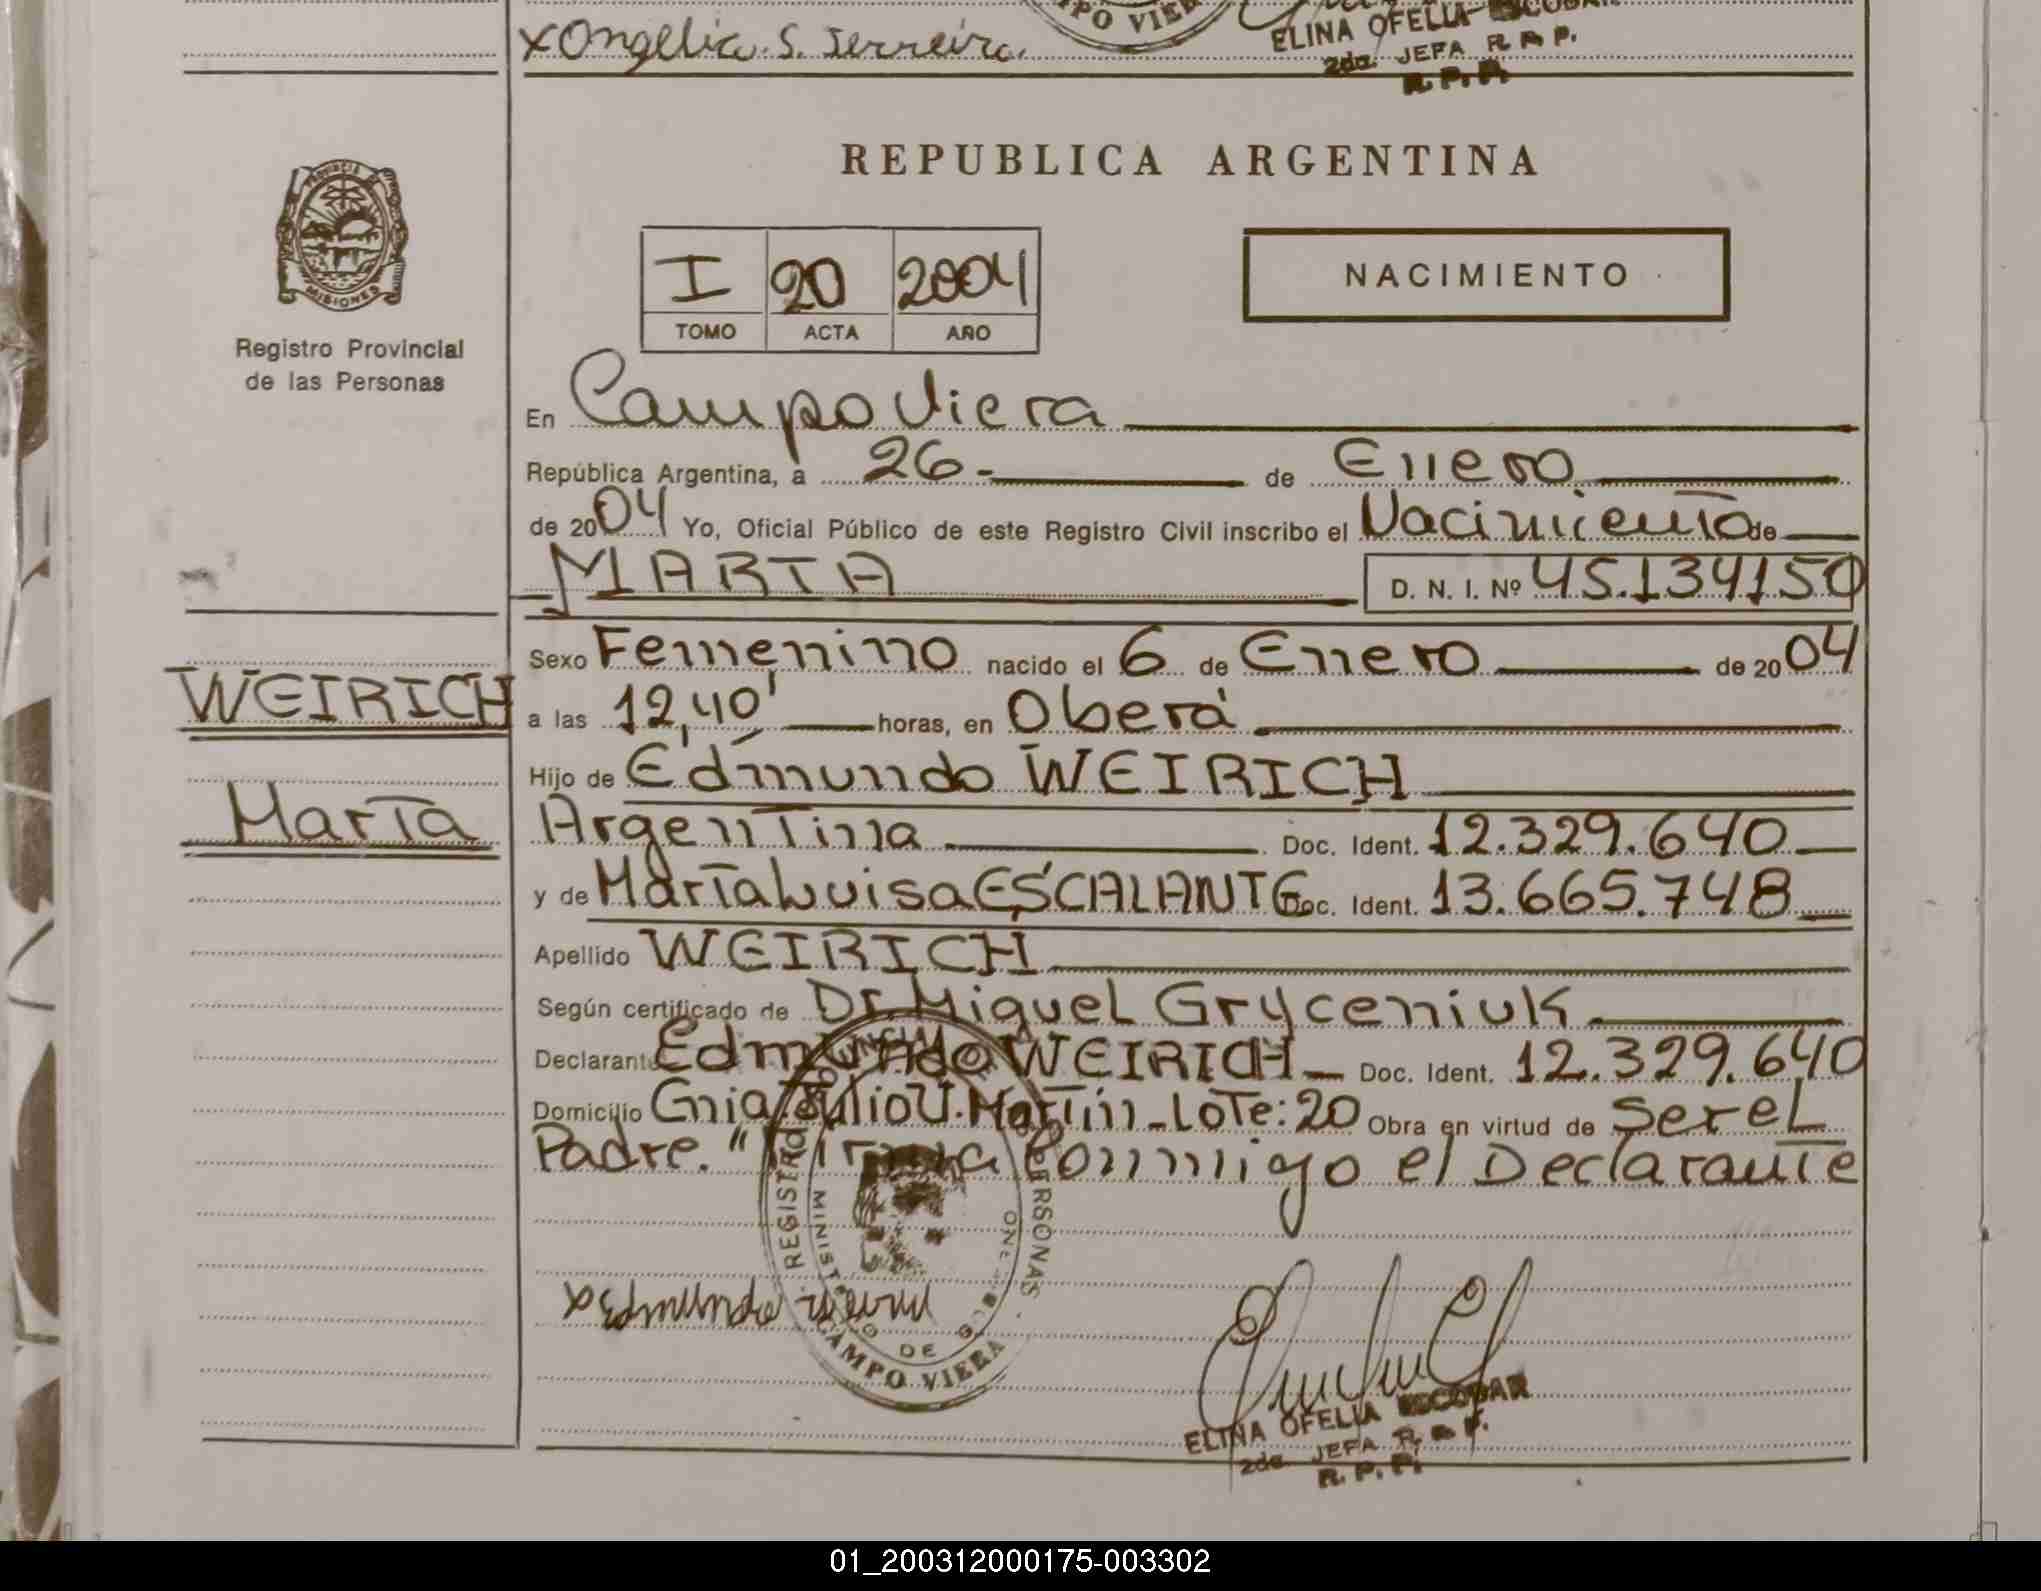 xAngelica. S. Ferreira.
CAMPO VIERA
ELINA OFELIA ESCOBAR
2da. JEFA R. A P.
R. P. P.
PROVINCIA DE
MISIONES
Registro Provincial
de las Personas
REPUBLICA ARGENTINA
I 20 2004
TOMO ACTA AÑO
NACIMIENTO
En Campo Viera
República Argentina, a 26- de Enero
de 2004 Yo, Oficial Público de este Registro Civil inscribo el Nacimiento de
MARTA D. N. I. Nº 45.134150
Sexo Femenino nacido el 6 de Enero de 2004
WEIRICH
a las 12,40' horas, en Oberá
Hijo de Edmundo WEIRICH
Marta
Argentina Doc. Ident. 12.329.640
y de Marta Luisa ESCALANTE Doc. Ident. 13.665.748
Apellido WEIRICH
Según certificado de Dr. Miguel Gryceniuk
Declarante Edmundo WEIRICH Doc. Ident. 12.329.640
Domicilio Cnia. Julio U. Martin - Lote: 20 Obra en virtud de ser el
Padre. "Firma Conmigo el Declarante
REGISTRO PROVINCIAL DE LAS PERSONAS
CAMPO VIERA
ELINA OFELIA ESCOBAR
2da JEFA R. A P.
R. P. P.
01_200312000175-003302